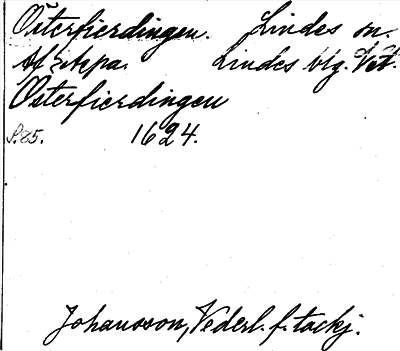 Österfierdingen. Lindes sn.
Af Lindes blg. Vstm.
Österfierdingen
S. 85. 1624.
Johansson, Vederl. f. tackj.